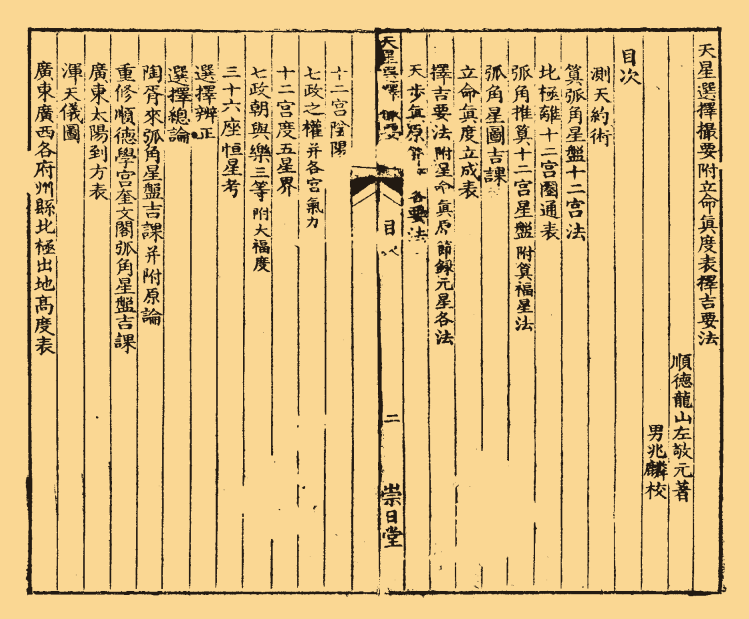 天星選擇撮要附立命眞度表擇吉要法
順德龍山左敬元著
男兆麟校
目次
測天約術
算弧角星盤十二宮法
北極離十二宮圈通表
弧角推算十二宮星盤附算福星法
弧角星圖吉課
立命眞度立成表
擇吉要法附星命眞原節錄元星各法
天步眞原
各要法
天星選擇
目次
二
崇日堂
十二宮陰陽
七政之權并各宮氣力
十二宮度五星界
七政朝與樂三等附大福度
三十六座恒星考
選擇辨正
選擇總論
陶胥來弧角星盤吉課并附原論
重修順德學宮奎文閣弧角星盤吉課
廣東太陽到方表
渾天儀圖
廣東廣西各府州縣北極出地高度表